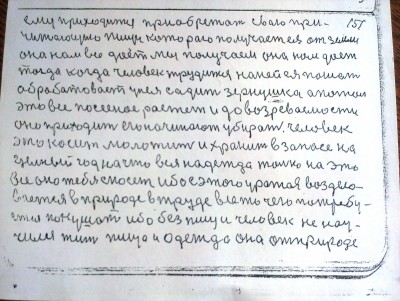 ему приходится приобретат свою при- 151
читающую пищу которая получается от земли
она нам ею даёт мы получаем она нам даёт
тогда когда человек трудится на ней пашет
обрабатовает у нея садит зернушка а потом
это все посееное растет и до возреваемости
оно приходит его начинают убират. человек
это косит молотит и хранит в запасе на
целый год на что вся надежда толко на это
все оно тебя спосет ибо с этого уратая воздело-
вается в природе в труде влеть чего потребу-
ется покушат ибо без пищи человек не нау-
чился жит пища и одежда она от природе